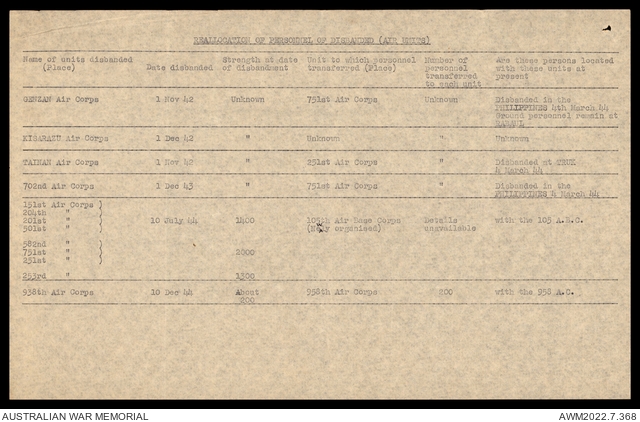 REALLOCATION OF PERSONNEL OF DISBANDED (AIR UNITS)
Name of units disbanded (Place) Date disbanded Strength at date of disbandment Unit to which personnel transferred (Place) Number of personnel transferred to each unit Are these persons located with these units at present
GENZAN Air Corps 1 Nov 42 Unknown 751st Air Corps Unknown Disbanded in the PHILIPPINES 4th March 44 Ground personnel remain at RABAUL
KISARAZU Air Corps 1 Dec 42 " Unknown " Unknown
TAINAN Air Corps 1 Nov 42 " 251st Air Corps " Disbanded at TRUK 4 March 44
702nd Air Corps 1 Dec 43 " 751st Air Corps " Disbanded in the PHILIPPINES 4 March 44
151st Air Corps )
204th "
201st " 10 July 44 1400 105th Air Base Corps Details with the 105 A.B.C.
501st " ) (Newly organised) unavailable
582nd " )
751st " 2000
251st " )
253rd " 1300
938th Air Corps 10 Dec 44 About 200 958th Air Corps 200 with the 958 A.C.
AUSTRALIAN WAR MEMORIAL AWM2022.7.368